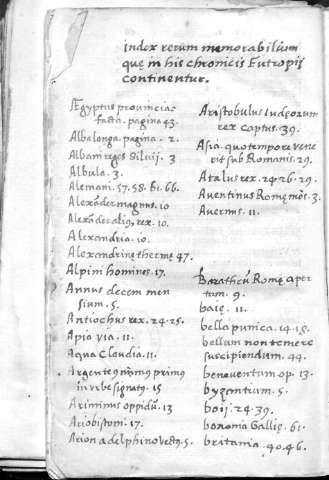 index rerum memorabilium
quę in his chronicis Eutropij
continentur.
Ægyptus provincia
facta. pagina 43.
Albalonga. pagina. 2
Albani reges Silvij. 3
Albula. 3
Alemani. 57. 58. 61. 66.
Alexāder magnus. 10
Alexāder rex. 10.
Alexandria. 10.
Alexandrinę thermę 47.
Alpini homines. 17.
Annus decem men
sium. 5.
Antiochus rex. 24. 25.
Apia via. 11.
Aqua Claudia. 11.
Argenteus primus
in urbe signatus. 15
Ariminus oppidū. 13
Ariobistom. 17.
Arion a delphino vectus. 5.
Aristobulus Iudęorum
rex captus. 39.
Asia. quo tempore vene
rit sub Romanis. 29.
Atalus rex. 24. 26. 29.
Aventinus Romę mōs. 3.
Avernus. 11.
Barathrū Romę aper
tum. 9.
baię. 11.
bella punica. 14. 18.
bellum non temere
suscipiendum. 44.
beneventum op. 13.
byzantium. 5.
boij. 24. 39.
bononia Gallię. 61.
britania. 40. 46.